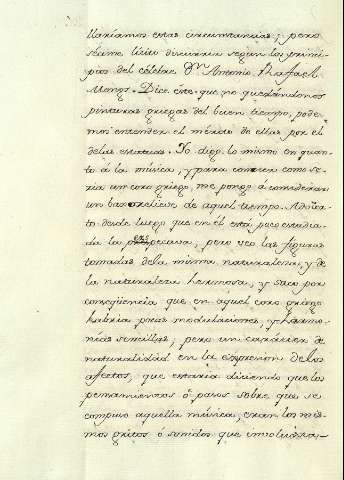 llaríamos estas circunstancias; pero
séame lícito discurrir según los princi-
pios del célebre Dn. Antonio Rafael
Mengs. Dice éste que no quedándonos
pinturas griegas del buen tiempo, pode-
mos entender el mérito de ellas por el
delas estatuas. Yo digo lo mismo en quan-
to á la música, y para conocer como se-
ría un coro griego, me pongo á considerar
un baxorelieve de aquel tiempo. Advier-
to desde luego que en él está poco estudia-
da la perspectiva, pero veo las figuras
tomadas dela misma naturaleza, y de
la naturaleza hermosa, y saco por
conseqüencia que en aquel coro griego
habria pocas modulaciones, y harmo-
nías sencillas; pero un carácter de
naturalidad en la expresion delos
afectos, que estaria diciendo que los
pensamientos ó pasos sobre que se
compuso aquella música, eran los mis-
mos gritos ó sonidos que involunta-